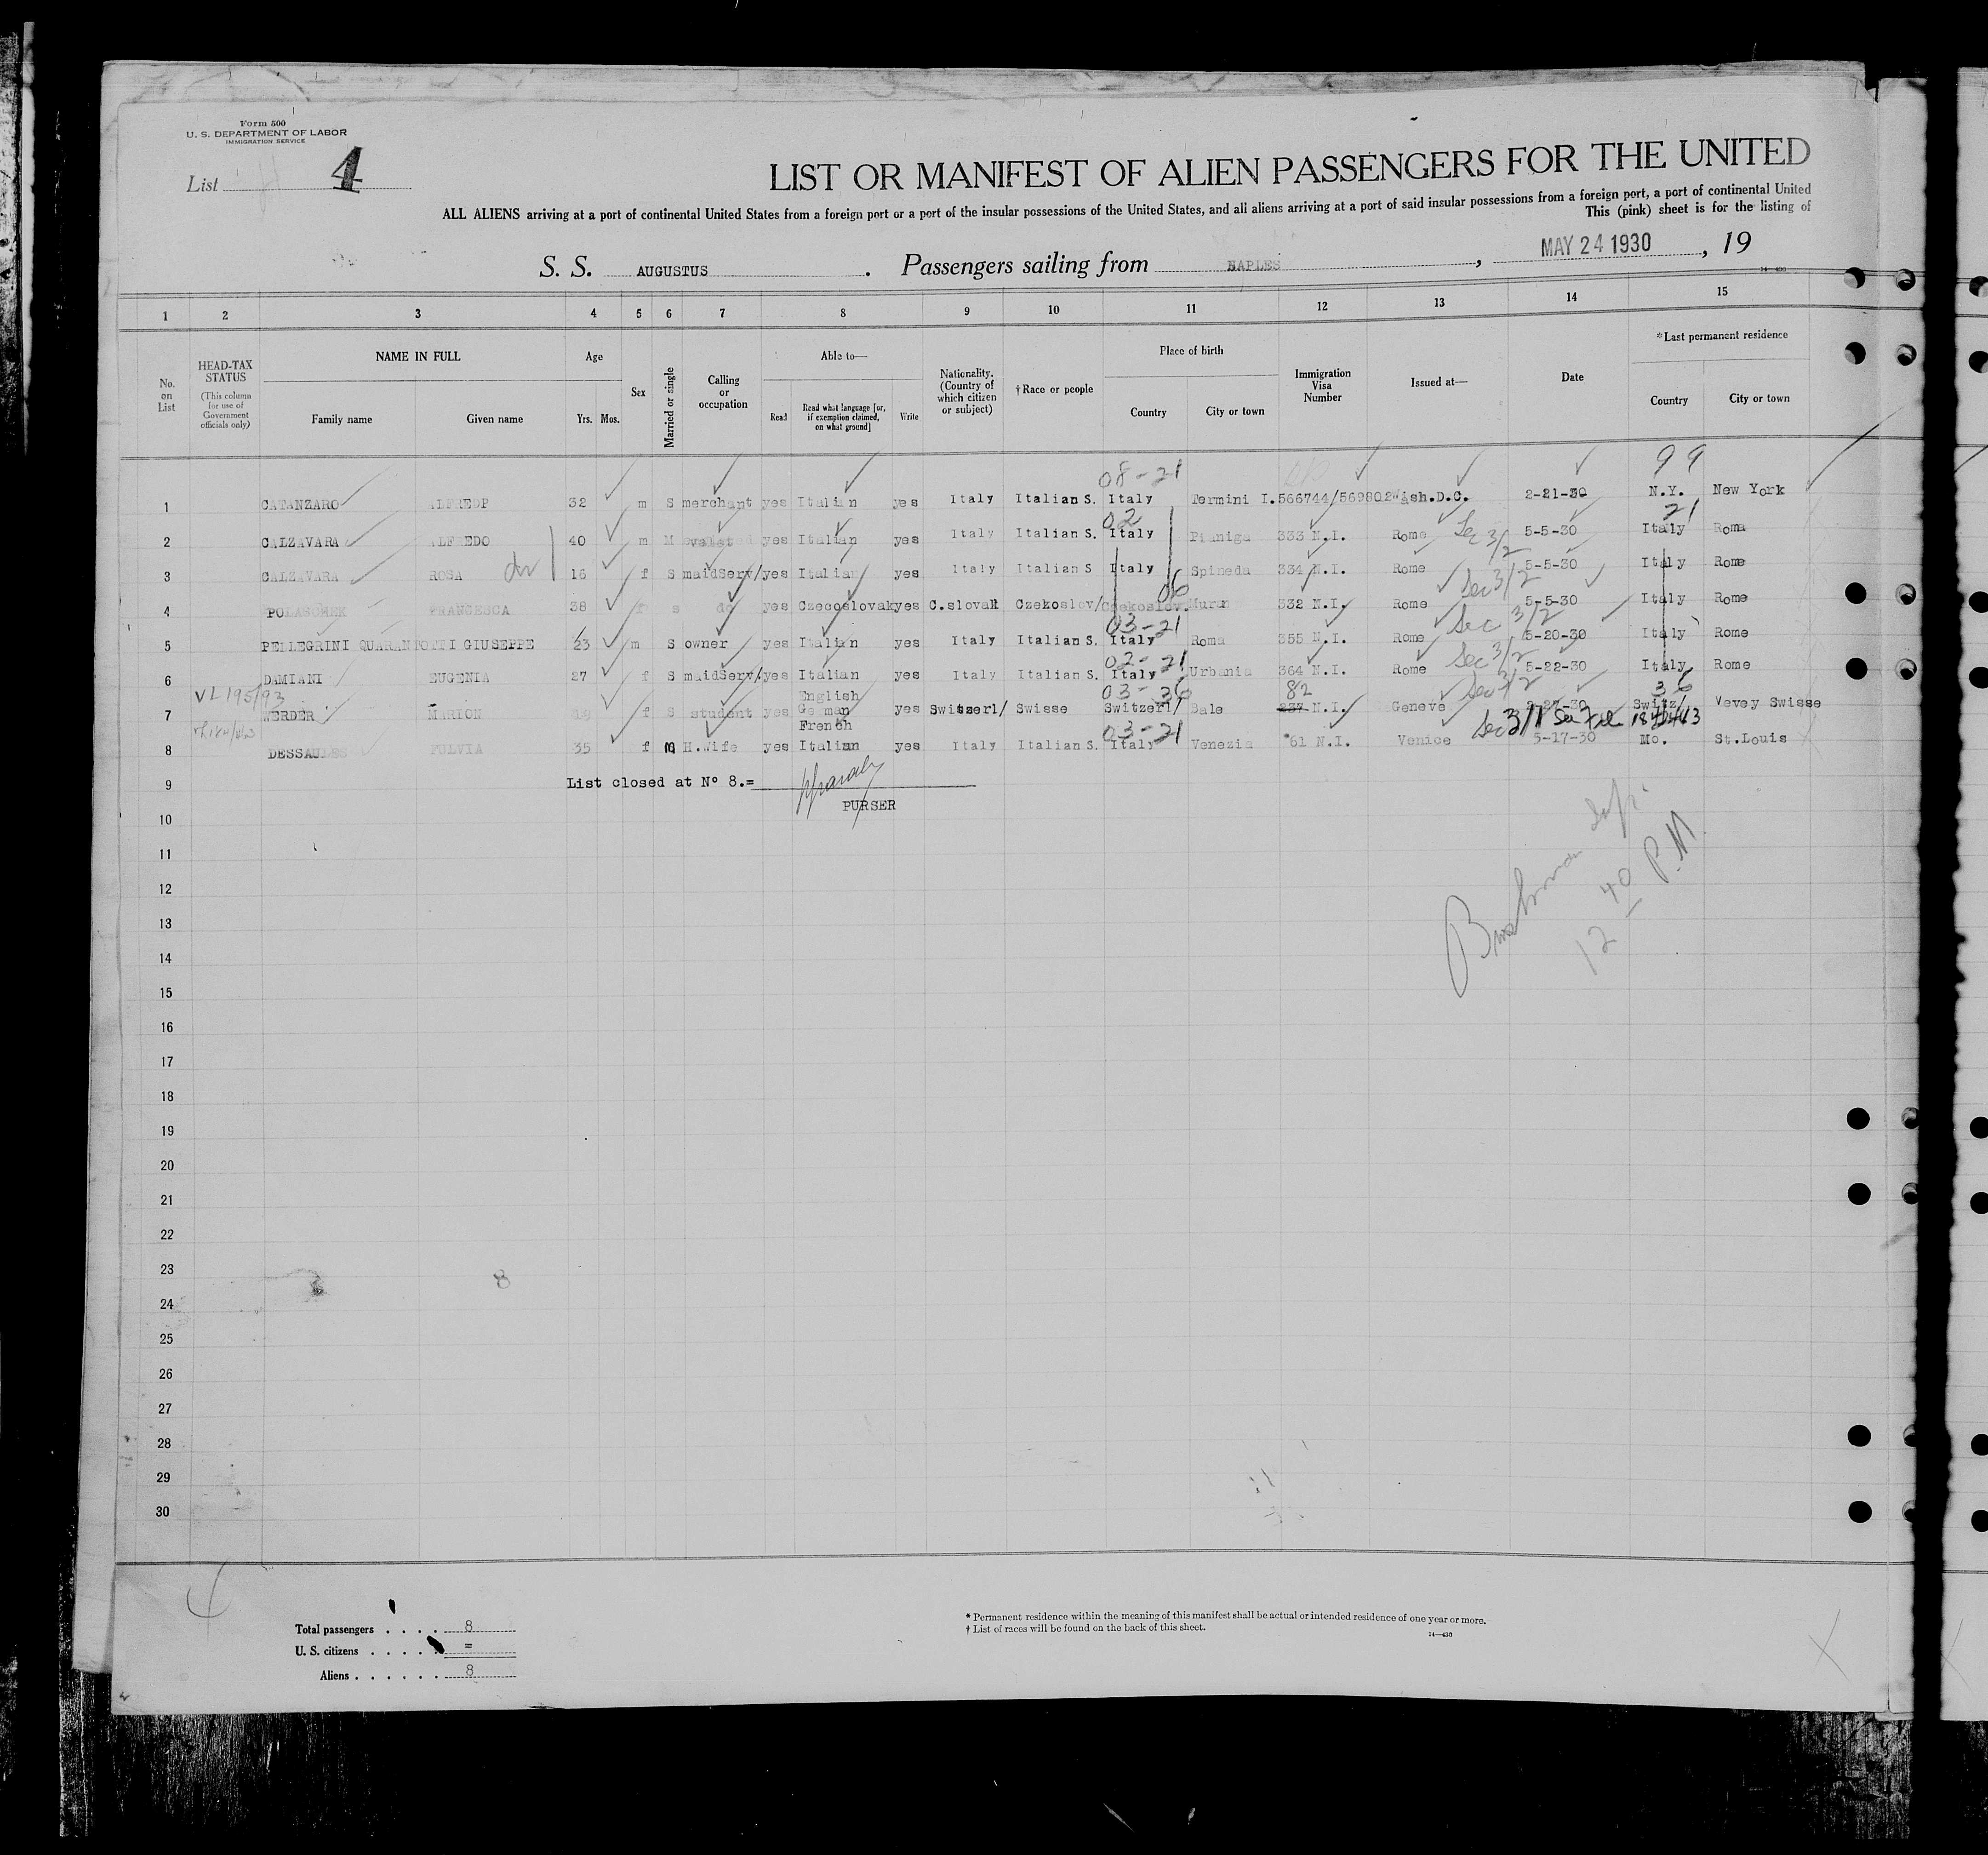 Form 500
U. S. DEPARTMENT OF LABOR
IMMIGRATION SERVICE
List 4
LIST OR MANIFEST OF ALIEN PASSENGERS FOR THE UNITED
ALL ALIENS arriving at a port of continental United States from a foreign port or a port of the insular possessions of the United States, and all aliens arriving at a port of said insular possessions from a foreign port, a port of continental United
This (pink) sheet is for the listing of
S. S. AUGUSTUS. Passengers sailing from NAPLES, MAY 24 1930, 19
14—430
1 2 3 4 5 6 7 8 9 10 11 12 13 14 15
No. on List
HEAD-TAX STATUS (This column for use of Government officials only)
NAME IN FULL Family name Given name
Age Yrs. Mos.
Sex
Married or single
Calling or occupation
Able to— Read Read what language [or, if exemption claimed, on what ground] Write
Nationality. (Country of which citizen or subject)
†Race or people
Place of birth Country City or town
Immigration Visa Number
Issued at—
Date
*Last permanent residence Country City or town
08-21 99
1 CATANZARO ALFREDP 32 m S merchant yes Italian yes Italy Italian S. Italy Termini I. 566744/569802 Wash.D.C. 2-21-30 N.Y. New York
02 21
2 CALZAVARA ALFREDO 40 m M valet yes Italian yes Italy Italian S. Italy Pianiga 333 N.I. Rome Sec 3/2 5-5-30 Italy Roma
3 CALZAVARA ROSA 16 f S maidServ/ yes Italian yes Italy Italian S Italy Spineda 334 N.I. Rome Sec 3/2 5-5-30 Italy Rome
06
4 POLASCHEK FRANCESCA 38 f s do yes Czecoslovak yes C.slovak Czekoslov/ Czekoslov. 332 N.I. Rome Sec 3/2 5-5-30 Italy Rome
03-21
5 PELLEGRINI QUARANTOTTI GIUSEPPE 23 m S owner yes Italian yes Italy Italian S. Italy Roma 355 N.I. Rome Sec 3/2 5-20-30 Italy Rome
02-21
6 DAMIANI EUGENIA 27 f S maidServ/ yes Italian yes Italy Italian S. Italy Urbania 364 N.I. Rome Sec 3/2 5-22-30 Italy Rome
VL 195/93 English 03-36 82 36
7 WERDER MARION f S student yes German yes Switzerl/ Swisse Switzerl/ Bale 237 N.I. Geneve 2-27-30 Switz/ Vevey Swisse
French 03-21 Sec 3/1
8 DESSAULES FULVIA 35 f m H.Wife yes Italian yes Italy Italian S. Italy Venezia 61 N.I. Venice 5-17-30 Mo. St.Louis
9 List closed at Nº 8.=
PURSER
10
11
12
12 40 P.M.
13
14
15
16
17
18
19
20
21
22
23
8
24
25
26
27
28
29
30
Total passengers . . . . 8
U. S. citizens . . . . . =
Aliens . . . . . . 8
* Permanent residence within the meaning of this manifest shall be actual or intended residence of one year or more.
† List of races will be found on the back of this sheet.
14—430